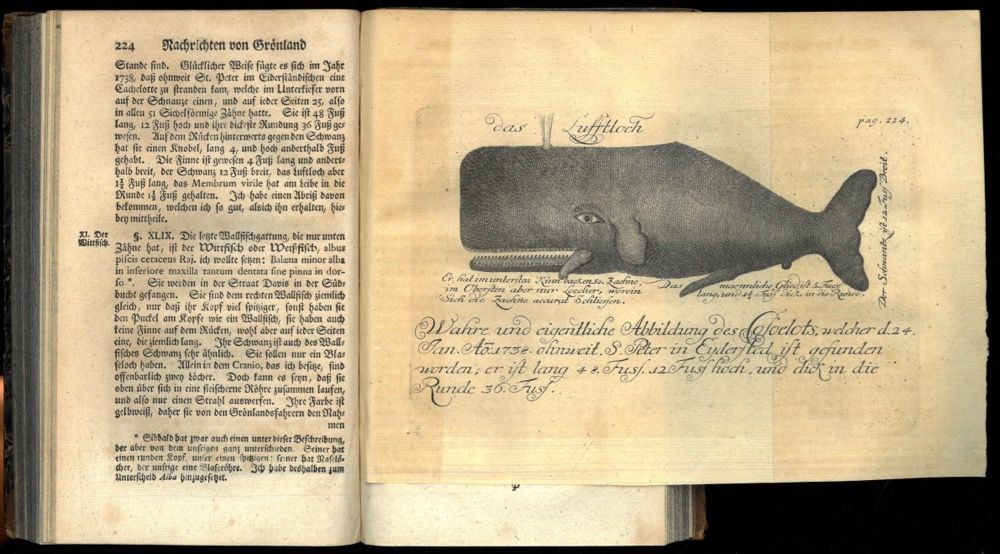 224 Nachrichten von Grönland
Stande sind. Glücklicher Weise fügte es sich im Jahr
1738, daß ohnweit St. Peter im Eiderstädischen eine
Cachelotte zu stranden kam, welche im Unterkiefer vorn
auf der Schnauze einen, und auf ieder Seiten 25, also
in allen 51 Sichelförmige Zähne hatte. Sie ist 48 Fuß
lang, 12 Fuß hoch und ihre dickeste Rundung 36 Fuß ge-
wesen. Auf dem Rücken hinterwerts gegen den Schwanz
hat sie einen Knobel, lang 4, und hoch anderthalb Fuß
gehabt. Die Finne ist gewesen 4 Fuß lang und andert-
halb breit, der Schwanz 12 Fuß breit, das Luftloch aber
1½ Fuß lang, das Membrum virile hat am Leibe in die
Runde 1½ Fuß gehalten. Ich habe einen Abriß davon
bekommen, welchen ich so gut, als ich ihn erhalten, hie-
bey mittheile.
XI. Der
Wittfisch.
§. XLIX. Die letzte Wallfischgattung, die nur unten
Zähne hat, ist der Wittfisch oder Weißfisch, albus
piscis cetaceus Raj. ich wollte setzen: Balæna minor alba
in inferiore maxilla tantum dentata sine pinna in dor-
so *. Sie werden in der Straat Davis in der Süd-
bucht gefangen. Sie sind dem rechten Wallfisch ziemlich
gleich, nur daß ihr Kopf viel spitziger, sonst haben sie
den Puckel am Kopfe wie ein Wallfisch, sie haben auch
keine Finne auf dem Rücken, wohl aber auf ieder Seiten
eine, die ziemlich lang. Ihr Schwanz ist auch des Wall-
fisches Schwanz sehr ähnlich. Sie sollen nur ein Bla-
seloch haben. Allein in dem Cranio, das ich besitze, sind
offenbarlich zwey Löcher. Doch kann es seyn, daß sie
oben über sich in eine fleischerne Röhre zusammen laufen,
und also nur einen Strahl auswerfen. Ihre Farbe ist
gelbweiß, daher sie von den Grönlandsfahrern den Nah-
men
* Sibbald hat zwar auch einen unter dieser Beschreibung,
der aber von dem unsrigen ganz unterschieden. Seiner hat
einen runden Kopf, unser einen spitzigen: seiner hat Naselö-
cher, der unsrige eine Blaseröhre. Ich habe deshalben zum
Unterscheid Alba hinzugesetzet.
pag. 224.
das Lufftloch
Der Schwantz ist 12 Fuss Breit.
Er hat im untersten Kinn backen 50. Zaehne,
im Obersten aber nur Loecher, worein
Sich die Zaehne acurat Schliesen.
Das maennliche Glied ist 5 Fuss
lang, und 1½ Fuss dick in die Runde.
Wahre und eigentliche Abbildung des Cascelots, welcher d. 24.
Jan. Ao. 1738. ohnweit. S. Peter in Eydersted ist gefunden
worden, er ist lang 48. Fuss. 12 Fuss hoch. und dick in die
Runde 36. Fuss.